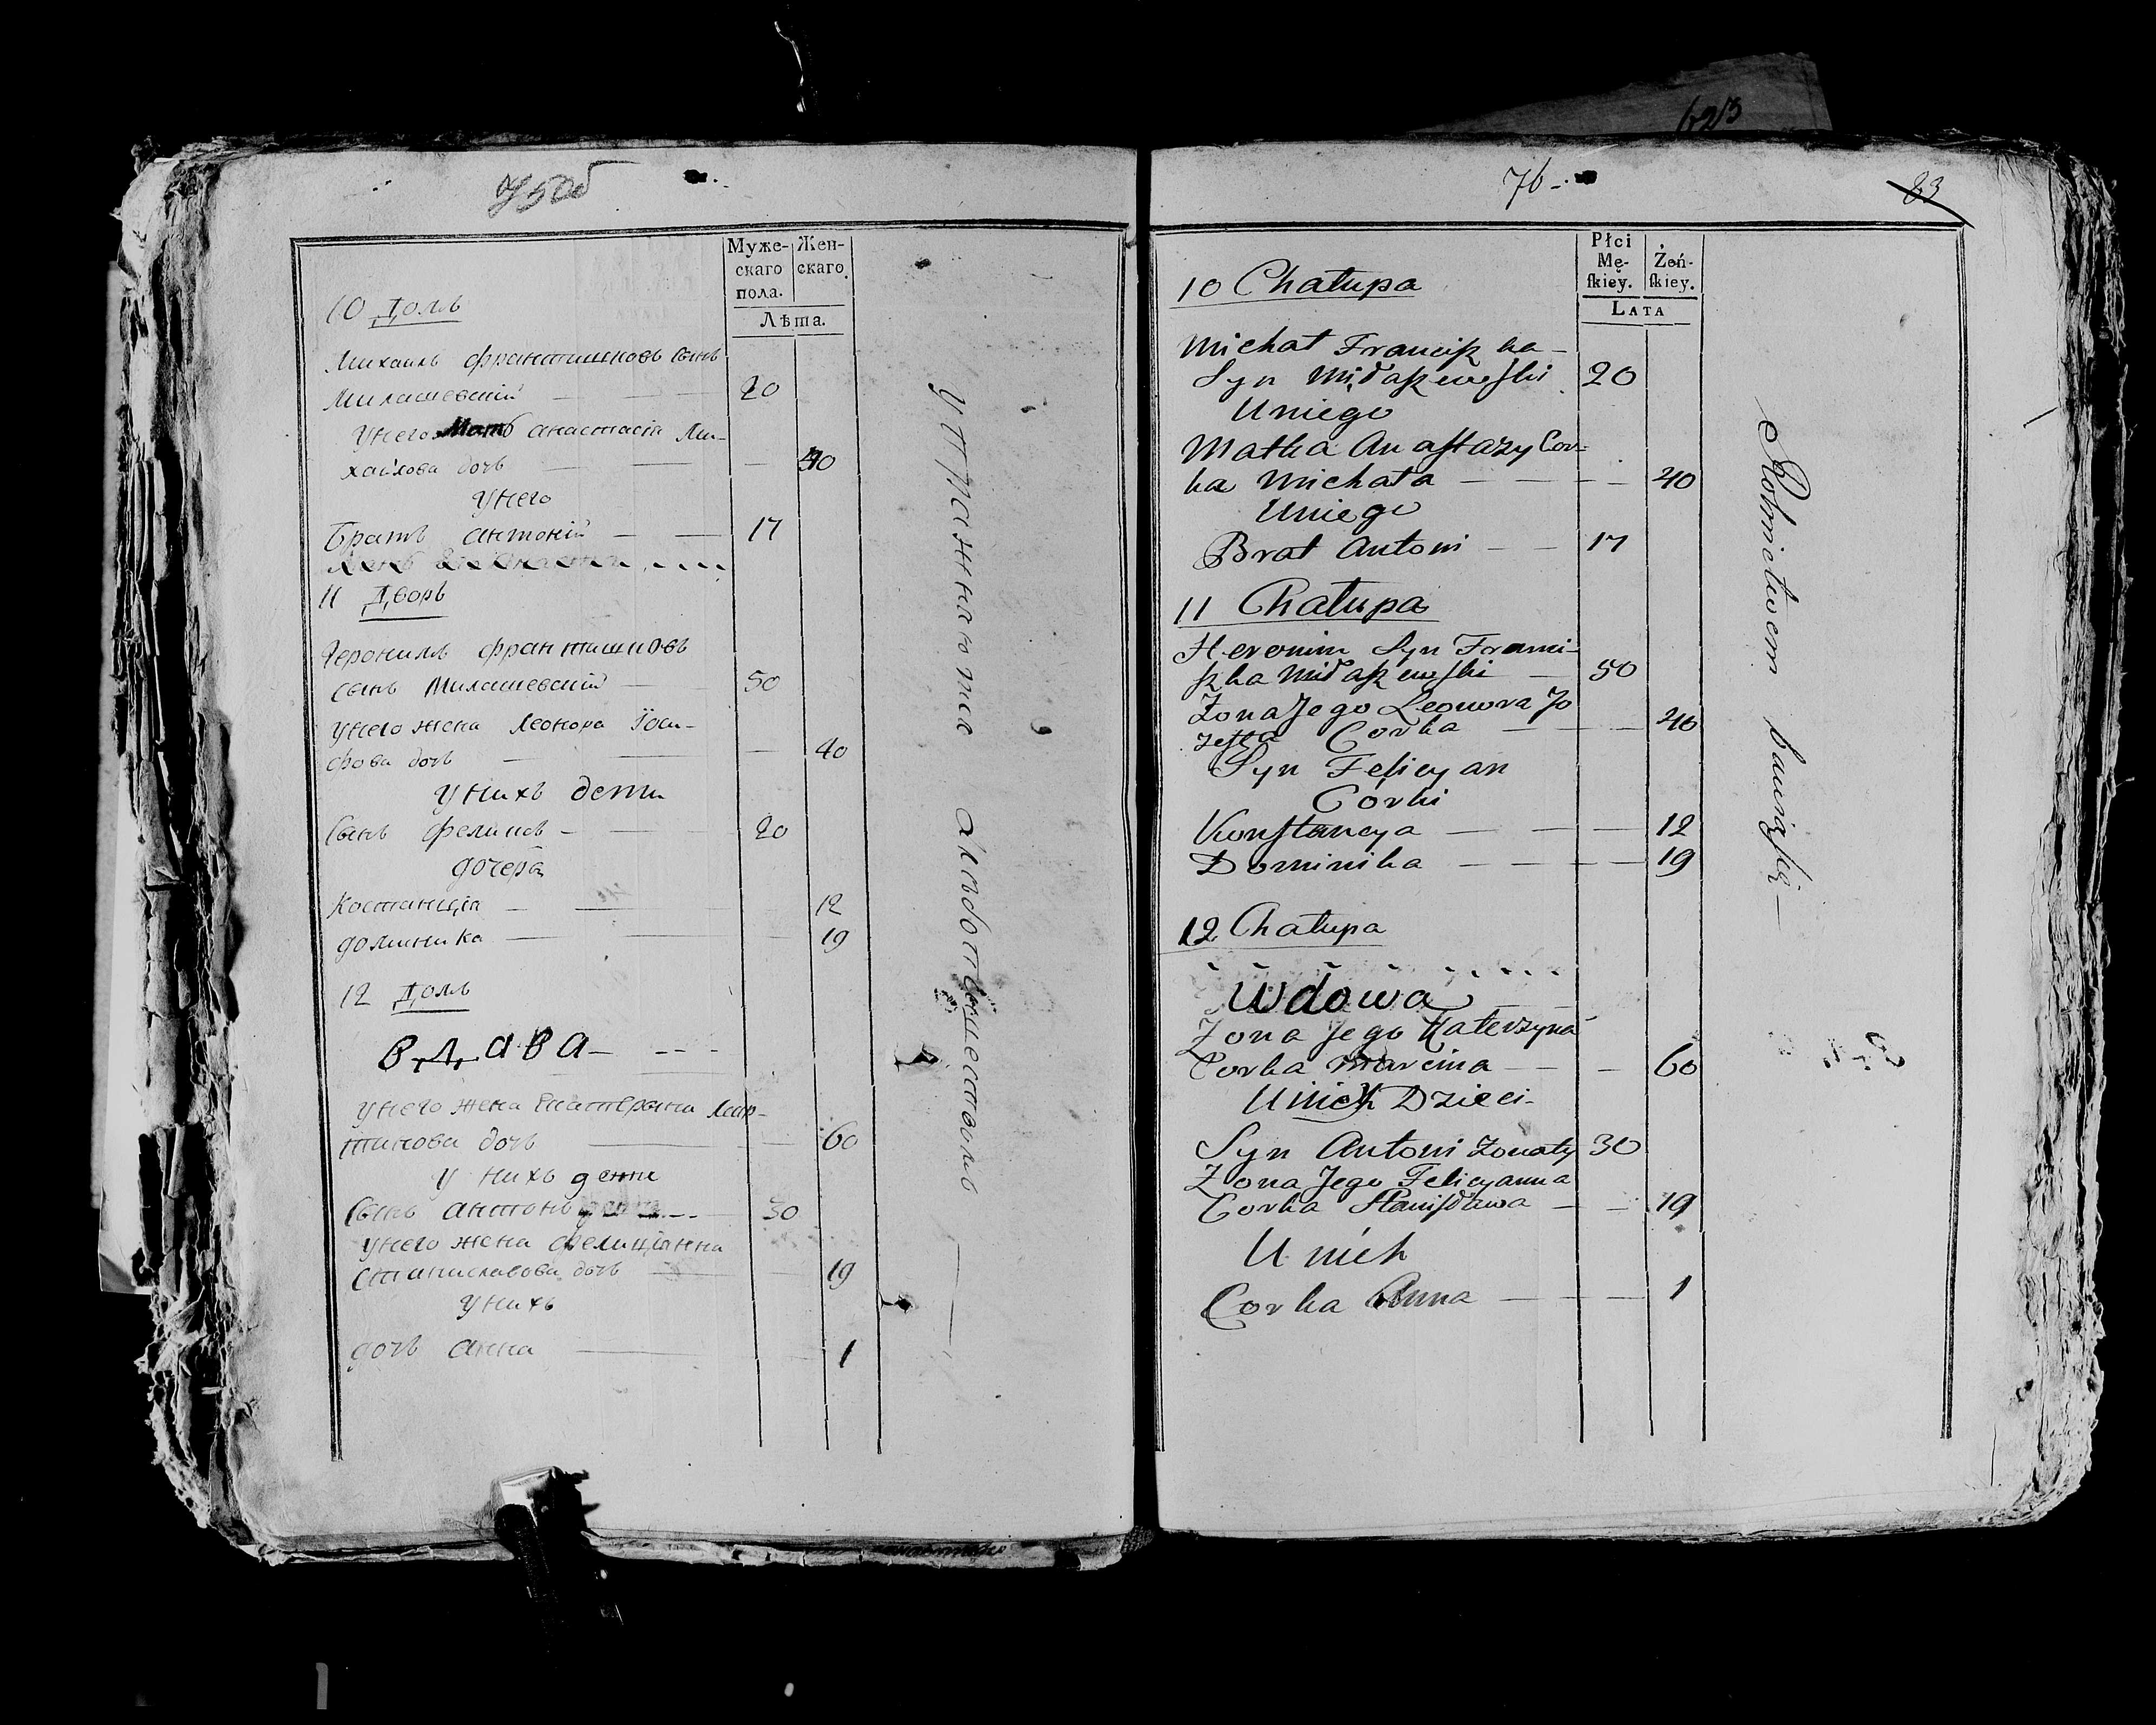 75об
Муже- Жен-
скаго скаго
пола.
Лѣта.
10 Домъ
Михаилъ Франтишковъ сынъ
Милашевскій — — 20
Унего Мать Анастасія Ми-
хайлова дочь — — — 40
Унего
Братъ Антоній — — 17
11 Дворъ
Геронимъ Франтишковъ
сынъ Милашевскій — 50
Унего жена Леонора Іоси-
фова дочь — — — 40
Унихъ дети
Сынъ Фелиціа — — 20
дочери
Костанція — — 12
Доминика — — 19
12 Домъ
Вдава — ---
Унего жена Екатерына Мар-
тинова дочь — — 60
У нихъ дети
Сынъ Антонъ 30
Унего жена Фелиціянна
Станиславова дочь — — 19
Унихъ
дочь Анна — — 1
76
83
623
Płci Żeń-
Mę- ſkiey.
ſkiey.
LATA
10 Chałupa
Michał Franciſzka
Syn Miłaſzewſki 20
Uniego
Matka Anaſtazy Cor-
ka Michała — — — — 40
Uniego
Brat Antoni — — 17
11 Chałupa
Heronim Syn Franci-
ſzka Miłaſzewſki — 50
Zona Jego Leonora Jo
zefa Corka — — — 40
Syn Felicyan
Córki
Konſtancya — — — 12
Dominika — — — — 19
12 Chałupa
Wdowa
Zona Jego Katerzyna
Corka Marcina — — — 60
Unich Dzieci-
Syn Antoni Zonaty 30
Zona Jego Felicyanna
Corka Staniſława — — 19
U nich
Corka Anna — — — 1
Rolnictwem bawiąſię —